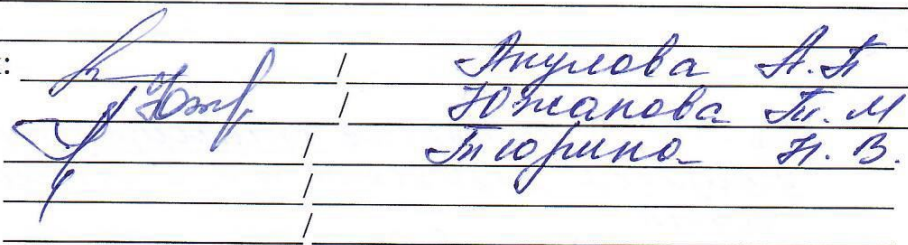 : / Акулова А.П
Южакова Т.М
/ Тюрина Н.В.
/
/